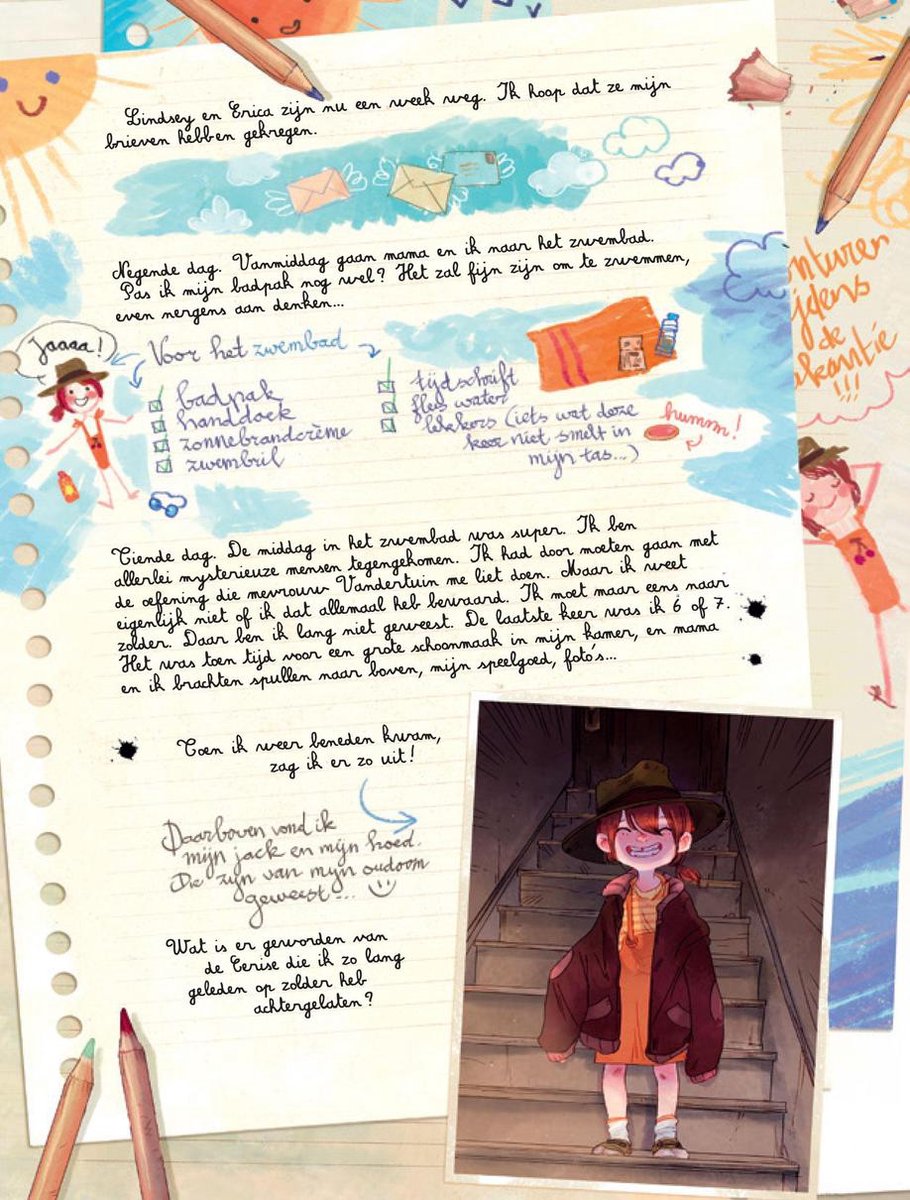 Lindsey en Erica zijn nu een week weg. Ik hoop dat ze mijn
brieven hebben gekregen.
Negende dag. Vanmiddag gaan mama en ik naar het zwembad.
Pas ik mijn badpak nog wel? Het zal fijn zijn om te zwemmen,
even nergens aan denken...
Jaaaa!
Voor het zwembad
badpak
handdoek
zonnebrandcrème
zwembril
tijdschrift
fles water
lekkers (iets wat deze
keer niet smelt in
mijn tas...)
humm!
Tiende dag. De middag in het zwembad was super. Ik ben
allerlei mysterieuze mensen tegengekomen. Ik had door moeten gaan met
de oefening die mevrouw Vandertuin me liet doen. Maar ik weet
eigenlijk niet of ik dat allemaal heb bewaard. Ik moet maar eens naar
zolder. Daar ben ik lang niet geweest. De laatste keer was ik 6 of 7.
Het was toen tijd voor een grote schoonmaak in mijn kamer, en mama
en ik brachten spullen naar boven, mijn speelgoed, foto's...
Toen ik weer beneden kwam,
zag ik er zo uit!
Daarboven vond ik
mijn jack en mijn hoed.
Die zijn van mijn oudoom
geweest...
Wat is er geworden van
de Cerise die ik zo lang
geleden op zolder heb
achtergelaten?
nturen
ijdens
de
akantie
!!!